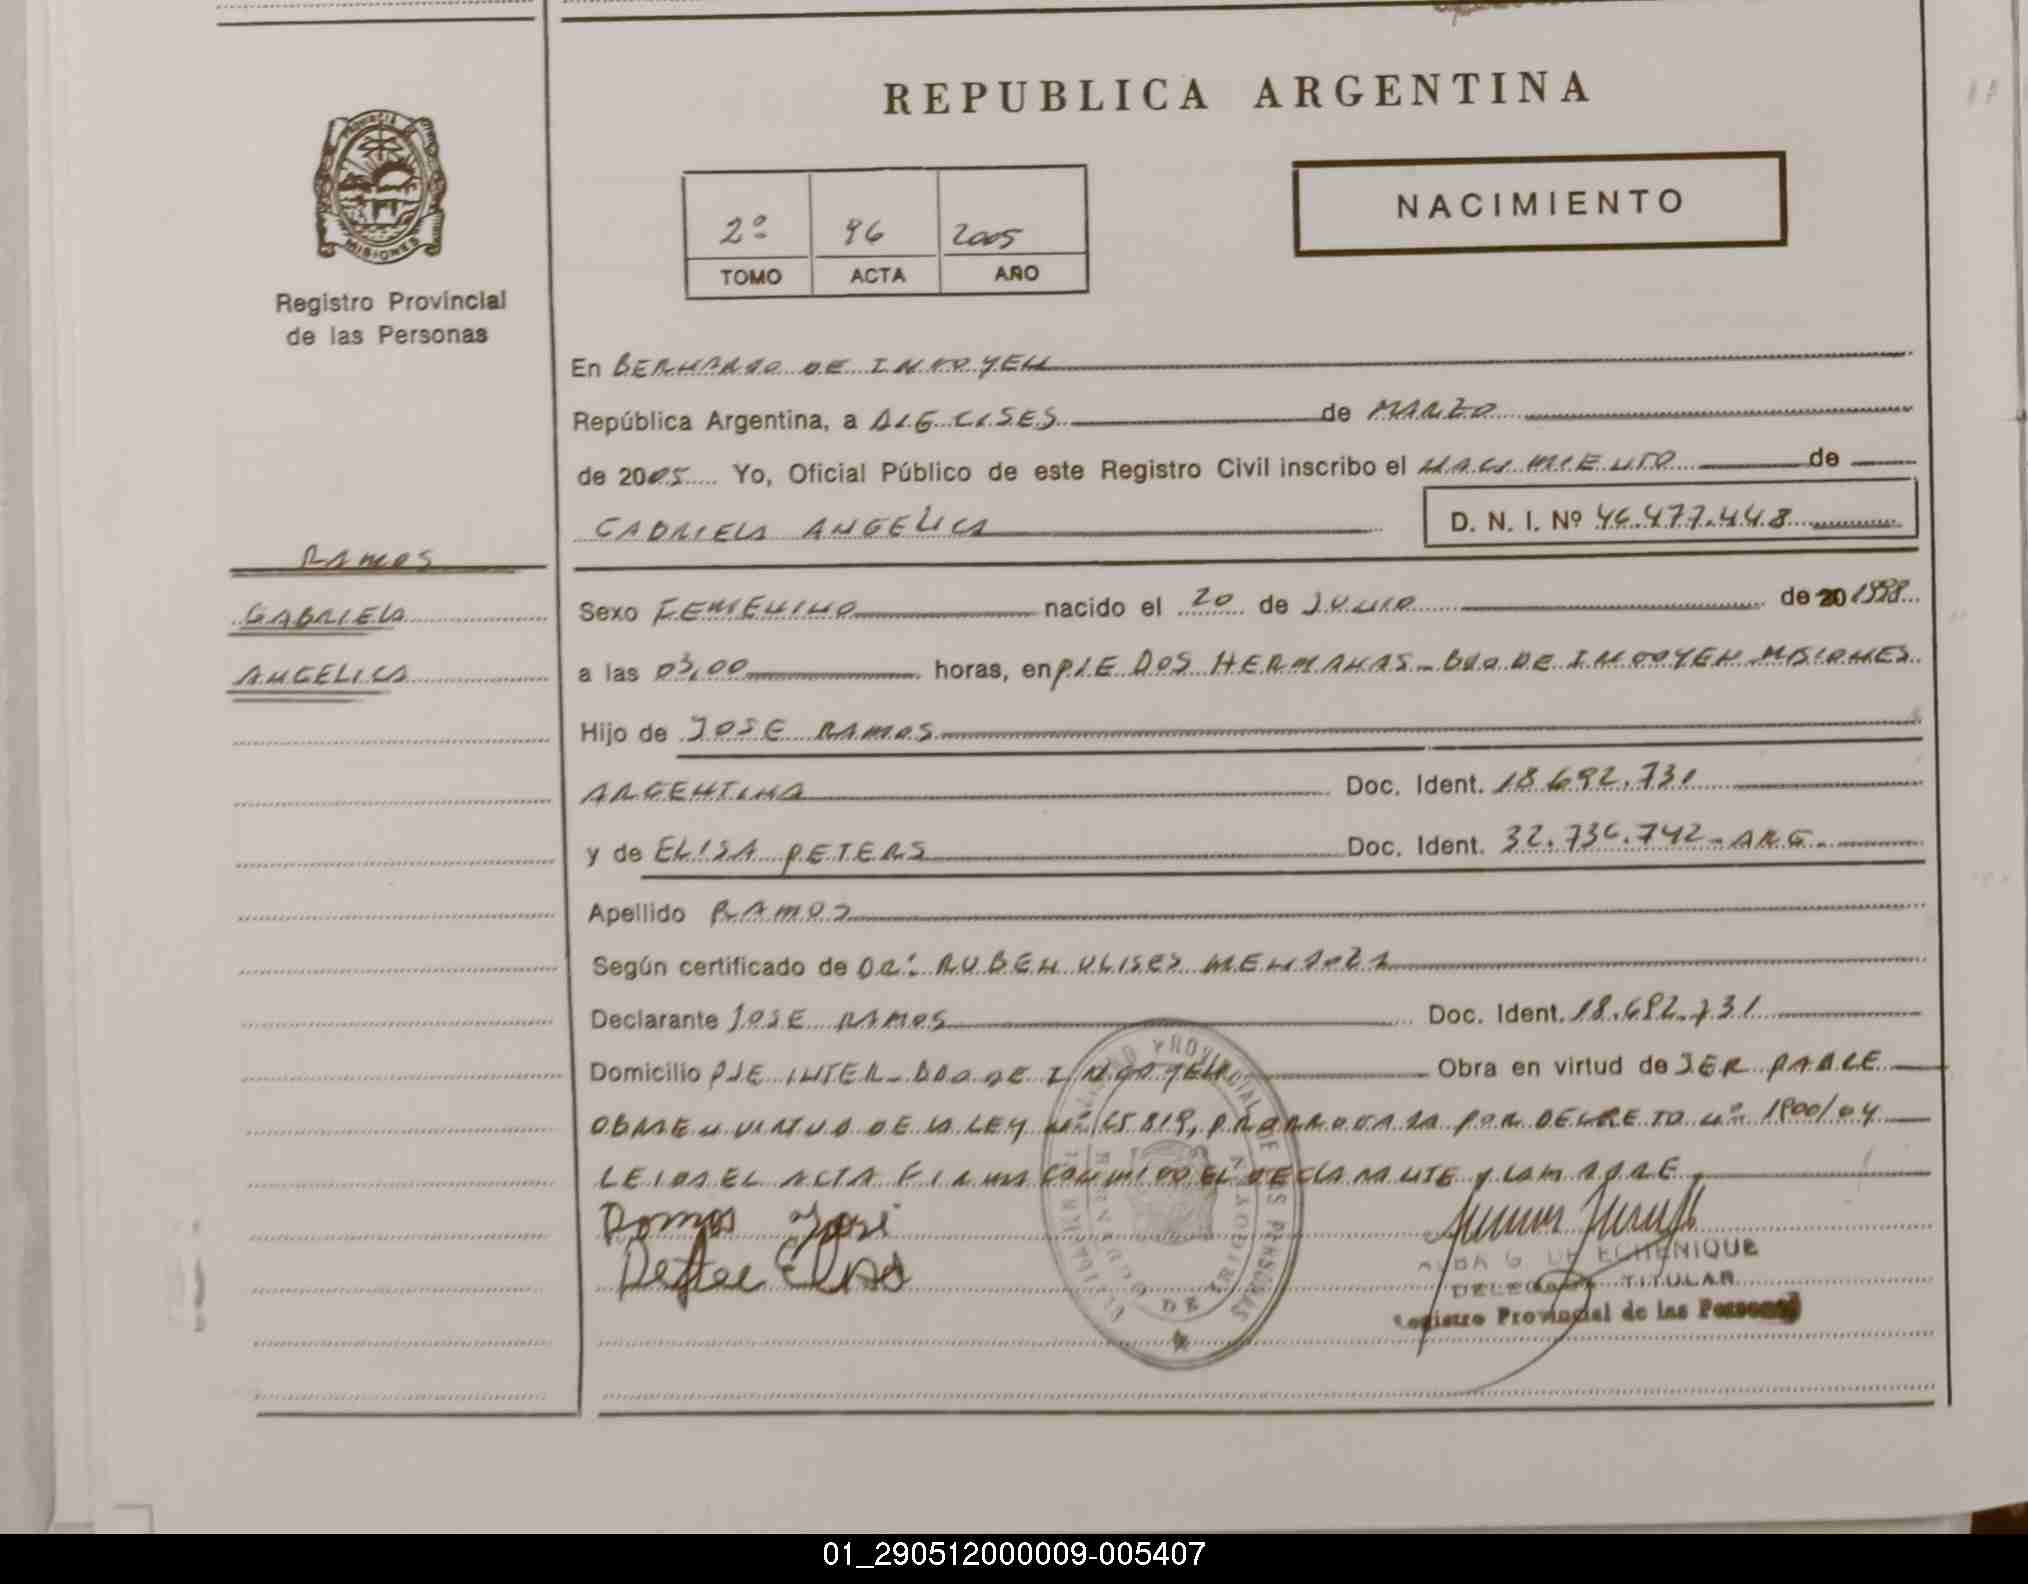 REPUBLICA ARGENTINA
PROVINCIA DE
MISIONES
Registro Provincial
de las Personas
2º 96 2005
TOMO ACTA AÑO
NACIMIENTO
En BERNARDO DE IRIGOYEN
República Argentina, a DIECISES de MARZO
de 2005 Yo, Oficial Público de este Registro Civil inscribo el NACIMIENTO de
GABRIELA ANGELICA D. N. I. Nº 46.477.448
RAMOS
GABRIELA
ANGELICA
Sexo FEMENINO nacido el 20 de JULIO de 20 1998
a las 03,00 horas, en PJE DOS HERMANAS - BDO DE IRIGOYEN MISIONES
Hijo de JOSE RAMOS
ARGENTINA Doc. Ident. 18.692.731
y de ELISA PETERS Doc. Ident. 32.736.742 - ARG.
Apellido RAMOS
Según certificado de DR: RUBEN ULISES MENDOZA
Declarante JOSE RAMOS Doc. Ident. 18.692.731
Domicilio PJE INTER - BDO DE IRIGOYEN Obra en virtud de SER PADRE
OBRA EN VIRTUD DE LA LEY Nº 25819, PRORROGADA POR DECRETO Nº 1900/04
LEIDA EL ACTA FIRMA CONMIGO EL DECLARANTE Y LA MADRE
Ramos José
Peter Elisa
G. DE ECHENIQUE
DELEGADA TITULAR
Registro Provincial de las Personas
01_290512000009-005407